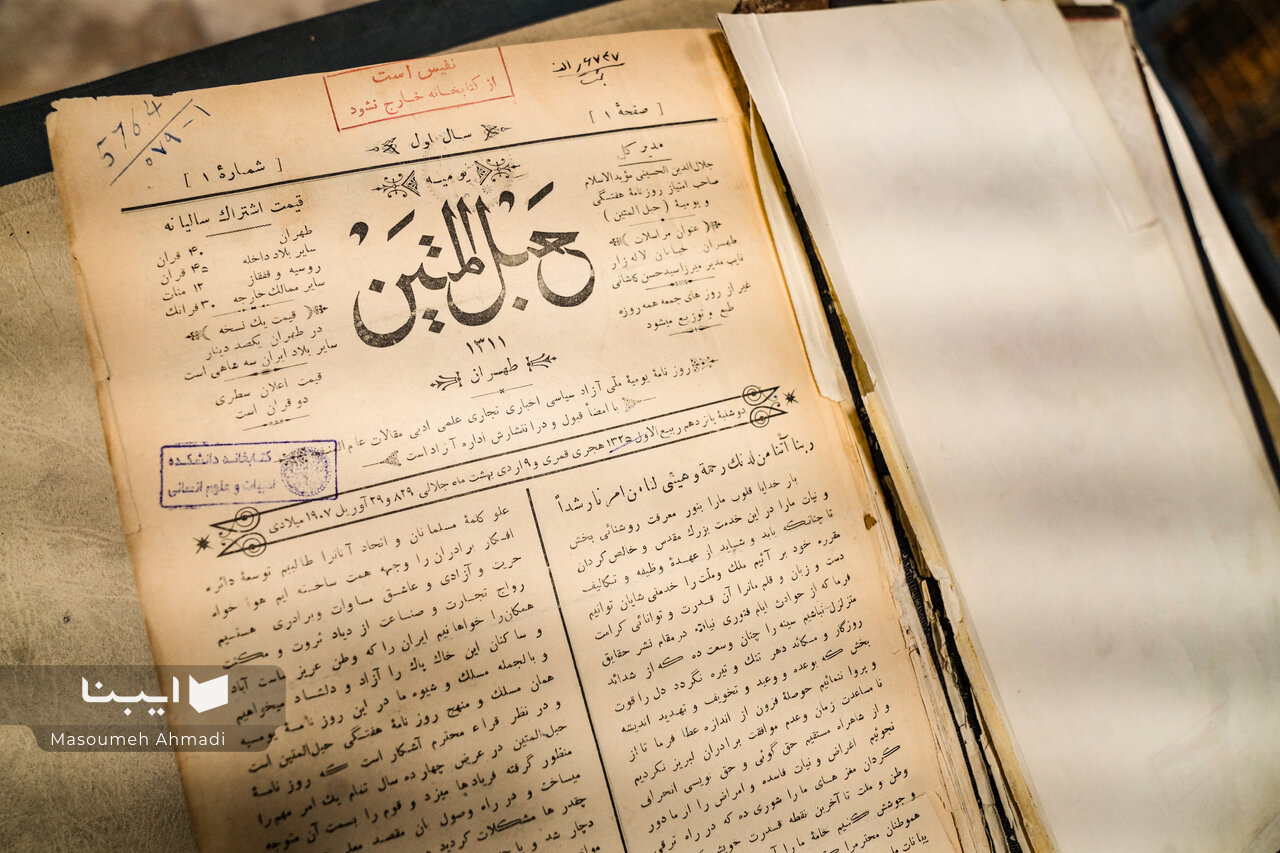 نفیس است
از کتابخانه خارج نشود
۶۷۴۷ر الف
5764
۰۷۹-۱
[ صفحهٔ ۱ ]
سال اول
[ شمارهٔ ۱ ]
مدیر کل
جلال‌الدین الحسینی مؤیدالاسلام
صاحب امتیاز روزنامهٔ هفتگی
و یومیهٔ ( حبل‌المتین )
( عنوان مراسلات )
طهران خیابان لاله‌زار
نایب مدیر میرزا سید حسن کاشانی
غیر از روز های جمعه همه روزه
طبع و توزیع میشود
یومیه
حبل المتین
۱۳۱۱
طهران
قیمت اشتراك سالیانه
طهران ۴۰ قران
سایر بلاد داخله ۴۵ قران
روسیه و قفقاز ۱۲ منات
سایر ممالك خارجه ۳۰ فرانك
( قیمت یك نسخه )
در طهران یکصد دینار
سایر بلاد ایران سه شاهی است
قیمت اعلان سطری
دو قران است
روز نامهٔ یومیهٔ ملی آزاد سیاسی اخباری تجاری علمی ادبی مقالات عام
با امضأ قبول و در انتشارش اداره آزاد است
دوشنبهٔ پانزدهم ربیع‌الاول ۱۳۲۵ هجری قمری و ۱۹ اردی بهشت ماه جلالی ۸۲۹ و ۲۹ آوریل ۱۹۰۷ میلادی
کتابخانه دانشکده
ادبیات و علوم انسانی
ربنا آتنا من لدنك رحمة و هیئی لنا من امر نا رشداً
بار خدایا قلوب مارا بنور معرفت روشنائی بخش
و نیات مارا در این خدمت بزرك مقدس و خالص کردان
تا چنانکه باید و شاید از عهدهٔ وظیفه و تکالیف
مقرره خود بر آئیم ملك وملت را خدمتی شایان توانیم
دست و زبان و قلم مانرا آن قدرت و توانائی کرامت
فرما که از حوادث ایام فتوری نیافته در مقام نشر حقایق
متزلزل نباشیم سینه را چنان وسعت ده که از شدائد
روزگار و مسکائد دهر تنك و تیره نگردد دل را قوت
بخش که بوعده و وعید و تخویف و تهدید اندیشه
و پروا ننمائیم حوصلهٔ فزون از اندازه عطا فرما تا از
نا مساعدت زمان وعدم موافقت برادران لبریز نگردیم
و از شاهراه مستقیم حق گوئی و حق نویسی انحراف
نجوئیم اغراض و نیات فاسده و امراض را از ما دور
کردان مغز های ما را شوری ده که در راه ترقی
وطن و ملت تا آخرین نقطه قدرت
و جوشش کنیم خامهٔ ما را
هموطنان محترم
علو کلمهٔ مسلمانان و اتحاد آنانرا طالبیم توسعهٔ دائره
افسکار برادران را وجهه همت ساخته ایم هوا خواه
حریت و آزادی و عاشق مساوات وبرادری هستیم
رواج تجارت و صناعت از دیاد ثروت و مکنت
همکان را خواهانیم ایران را که وطن عزیز ماست آباد
و ساکنان این خاك پاك را آزاد و دلشاد میخواهیم
و بالجمله مسلك و شیوه ما در این روز نامهٔ یومیه
همان مسلك و منهج روز نامهٔ هفتگی حبل‌المتین است
و در نظر قراء محترم آشکار است که روز نامهٔ
حبل‌المتین در عرض چهار ده سال تمام یك امر مهم را
منظور گرفته فریادها میزد و قوم را بسمت آن متوجه
میساخت و در راه وصول بآن مقصد
چقدر ها مشکلات کردید
دچار شد و
ایبنا
Masoumeh Ahmadi